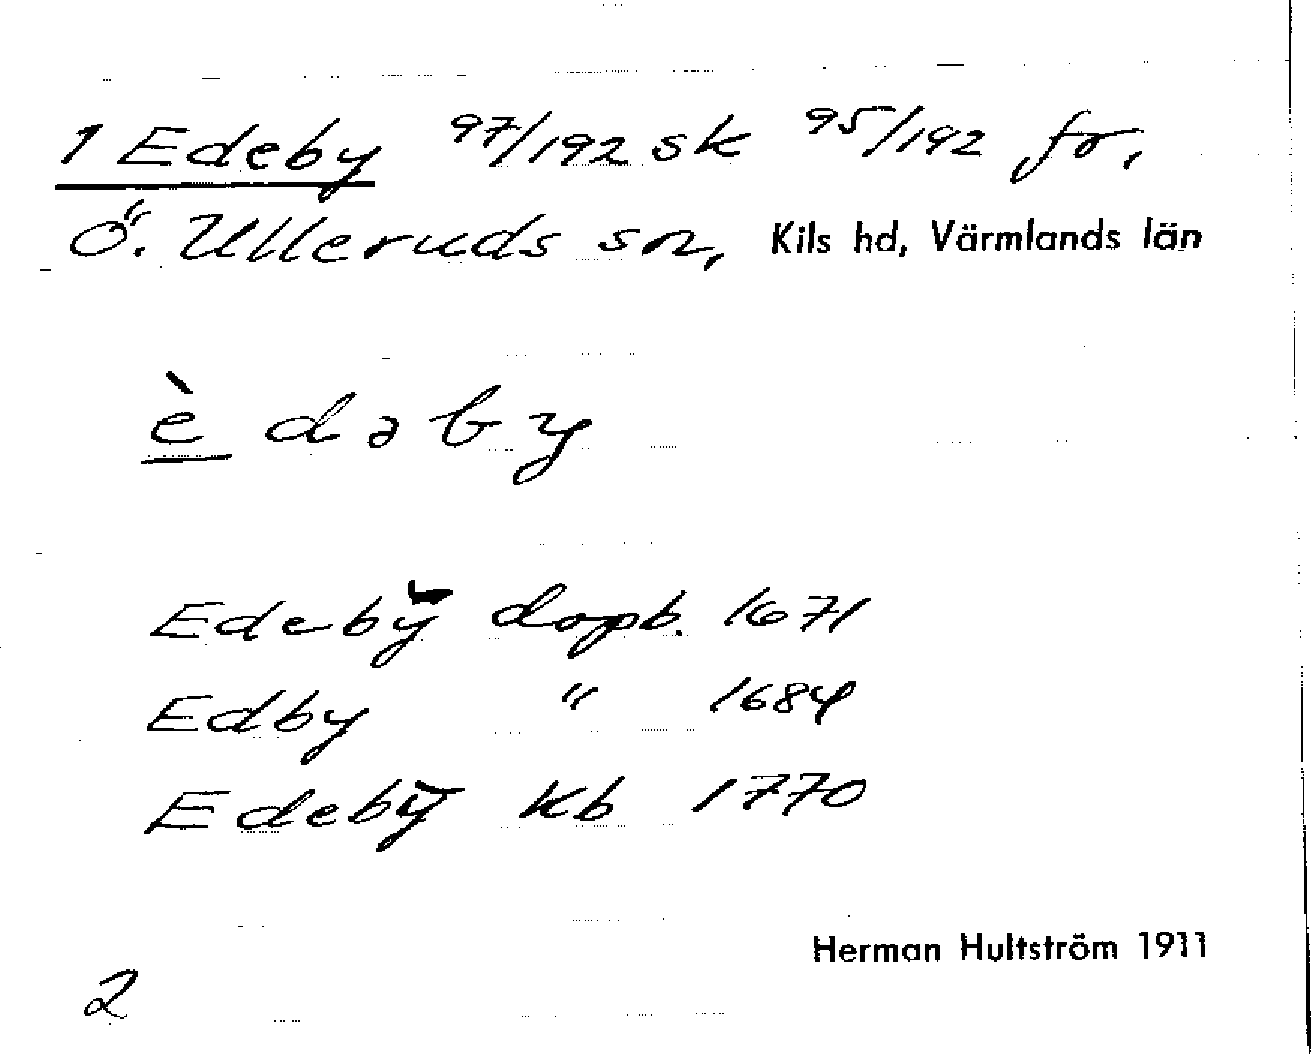 1 Edeby 97/192 sk 95/192 fr,
Ö. Ulleruds sn, Kils hd, Värmlands län
è dəby
Edebÿ dopb. 1671
Edby " 1684
Edebÿ kb 1770
Herman Hultström 1911
2